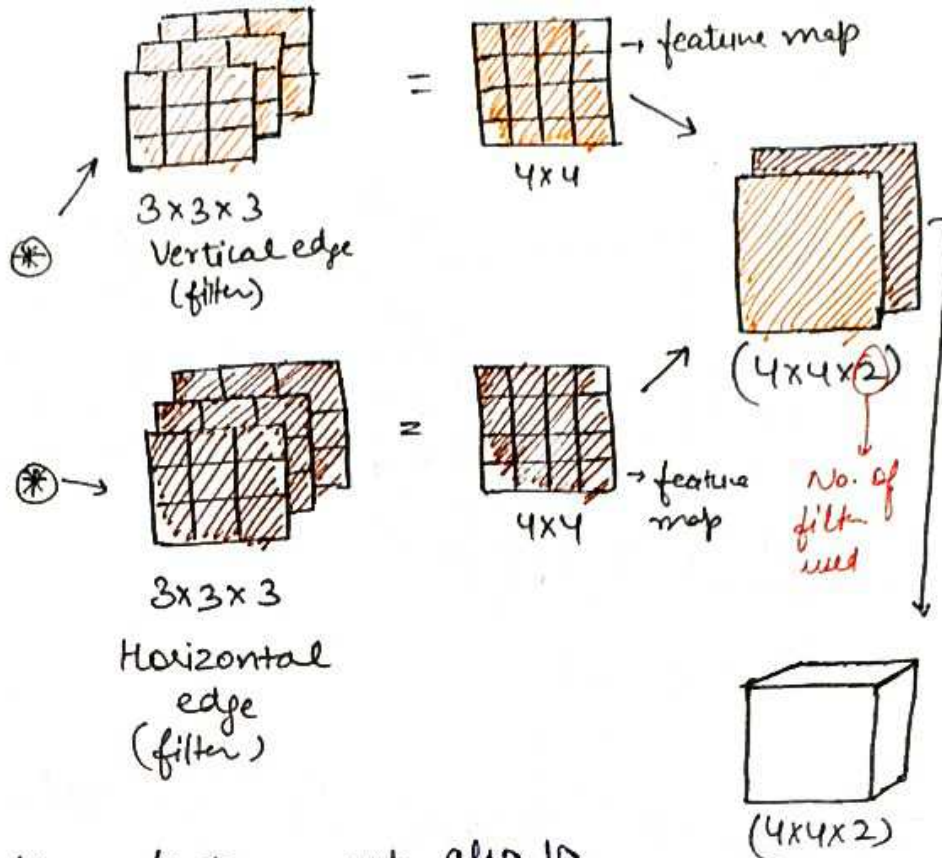 = → feature map
4x4
3x3x3
Vertical edge
(filter)
(4x4x2)
No. of
filter
used
=
→ feature
map
4x4
3x3x3
Horizontal
edge
(filter)
(4x4x2)